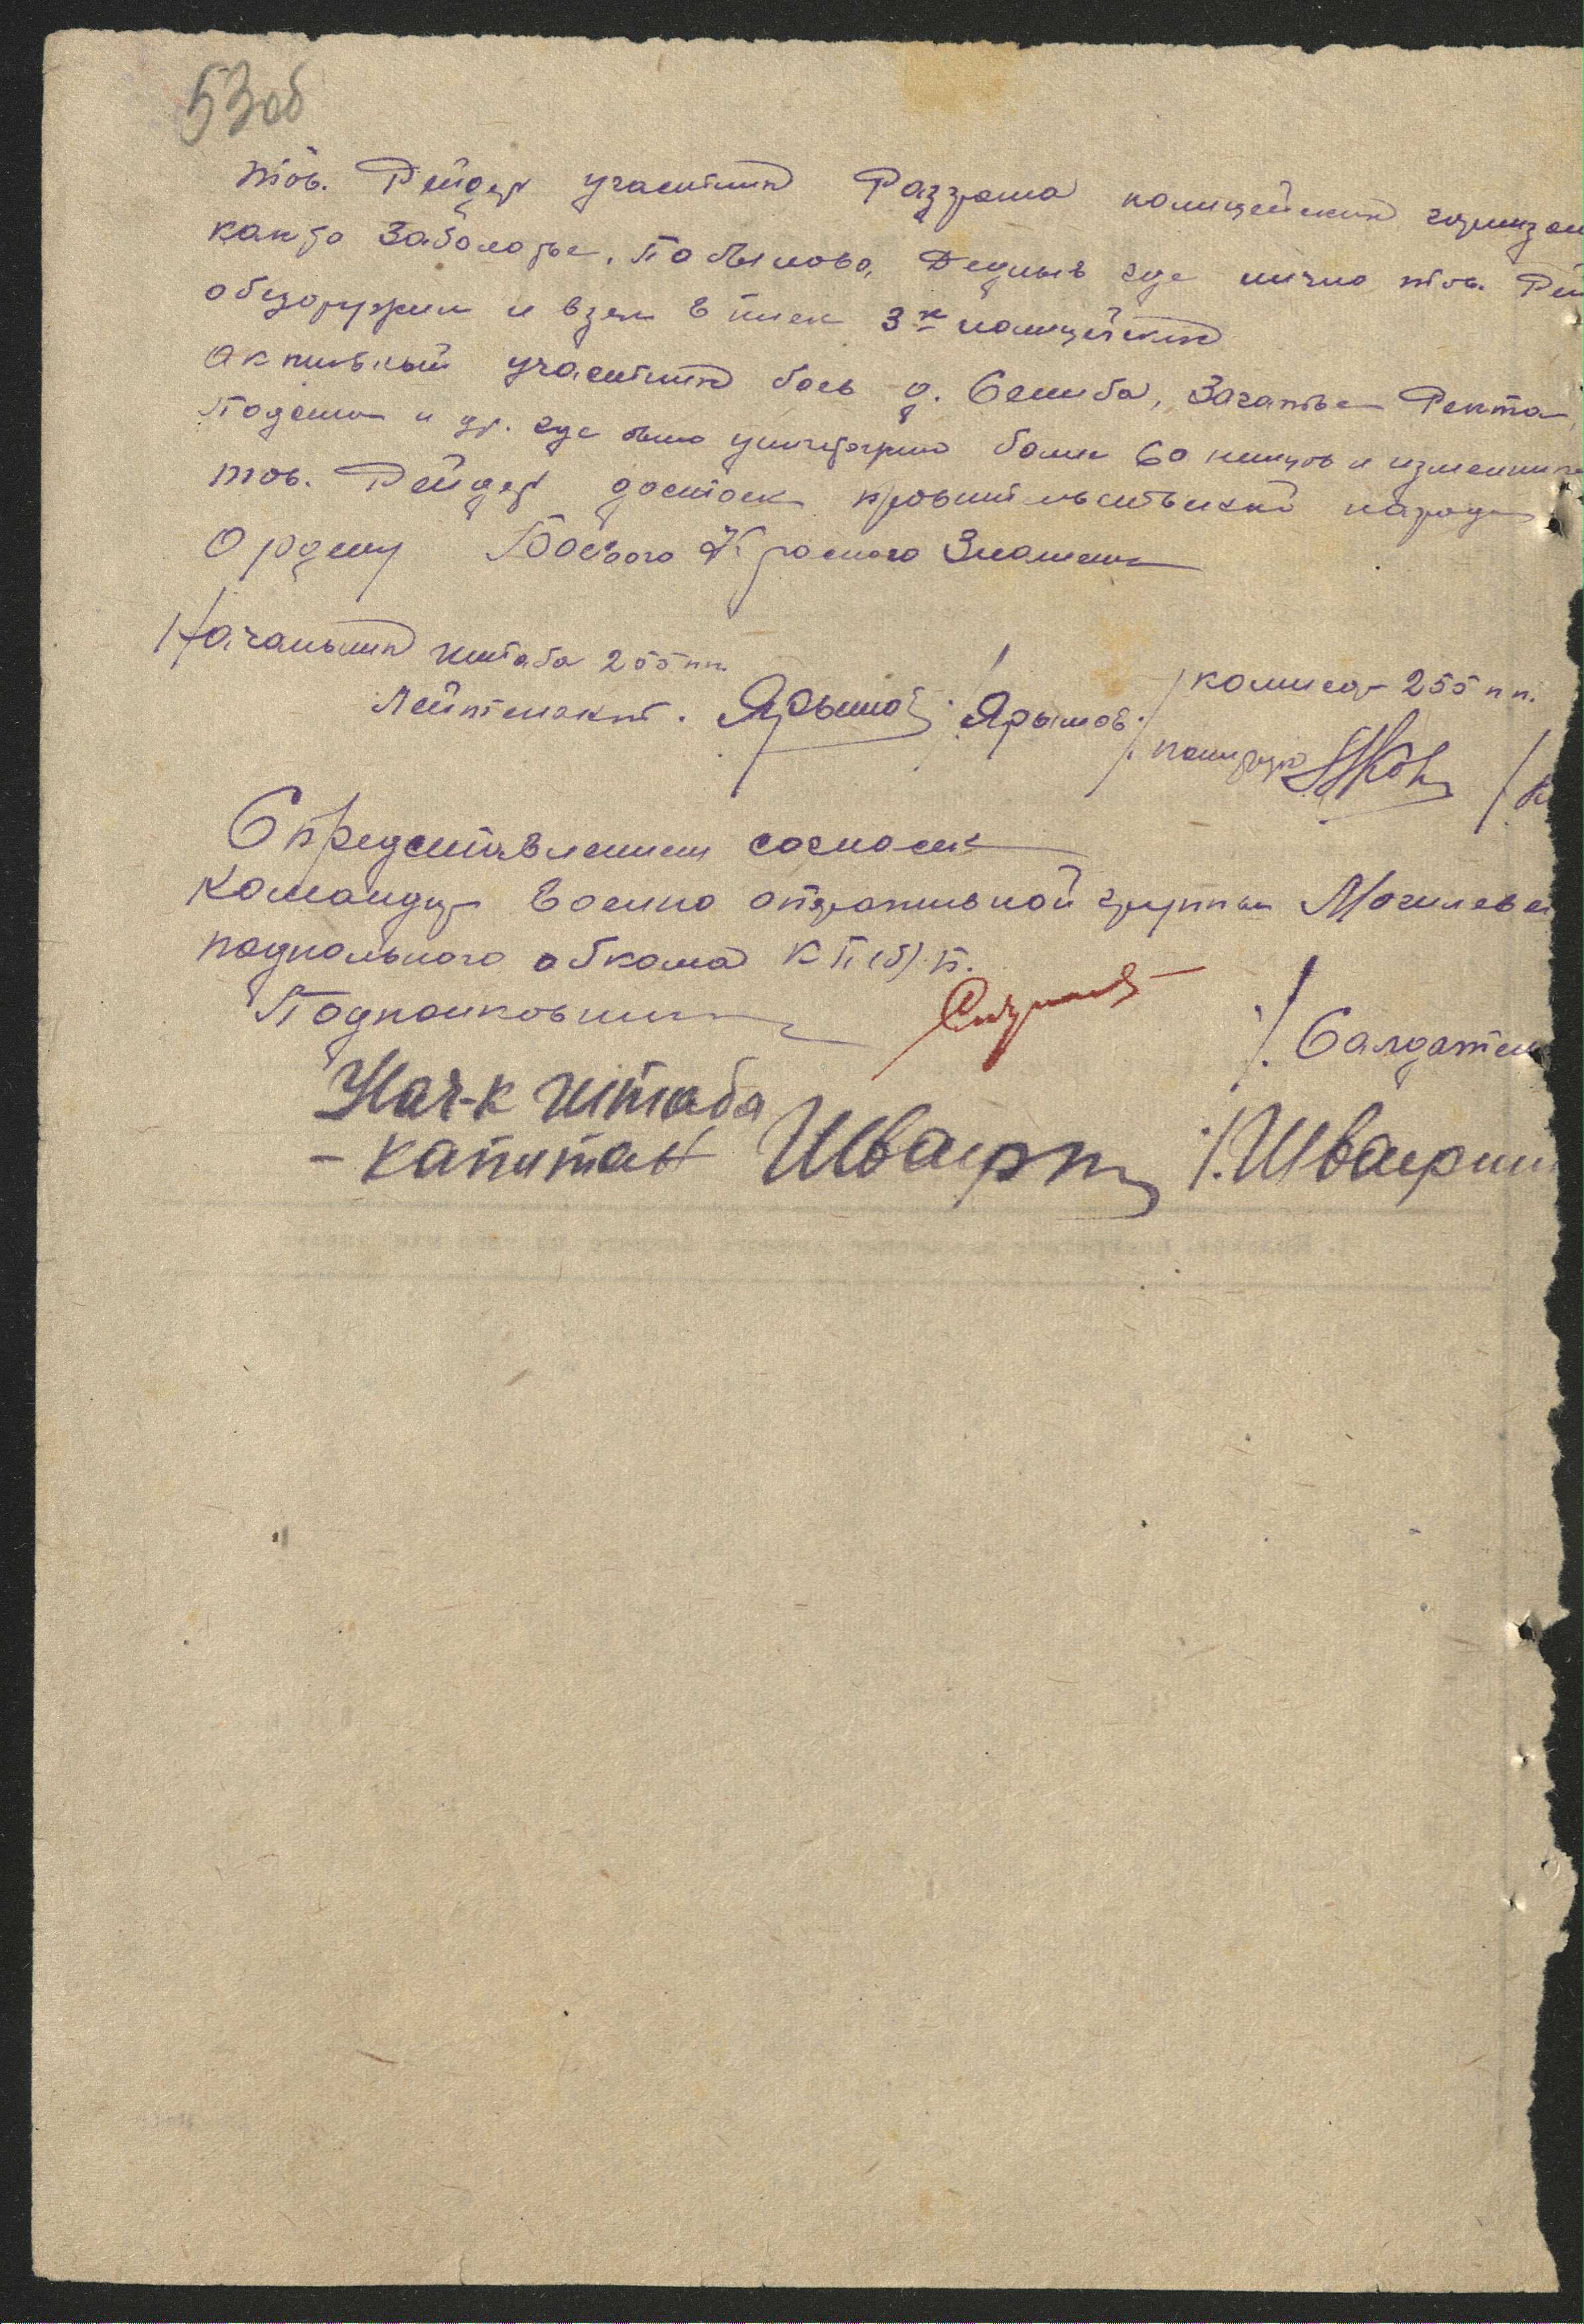 53об
тов. Рейдер участник Разгрома полицейских гарнизон
как то Заболотье, Дедных где лично тов. Рей
обезоружил и взял в плен 3х полицейских
Активный участник боев д. Селиба, Зачатье Ректа
и др. где было уничтожено более 60 немцев и изменник
тов. Рейдер достоен правительственной награды
Ордену Боевого Красного Знамени
Начальник штаба 255 пп. комисар 255 пп.
Лейтенант. Ярымов /Ярымов./ политрук
С представлением согласен
Командир Военно оперативной группы Могилевск
подпольного обкома КП(б)Б.
Подполковник /. Салдатен
Нач-к штаба
- капитан Швагри /. Швагрин